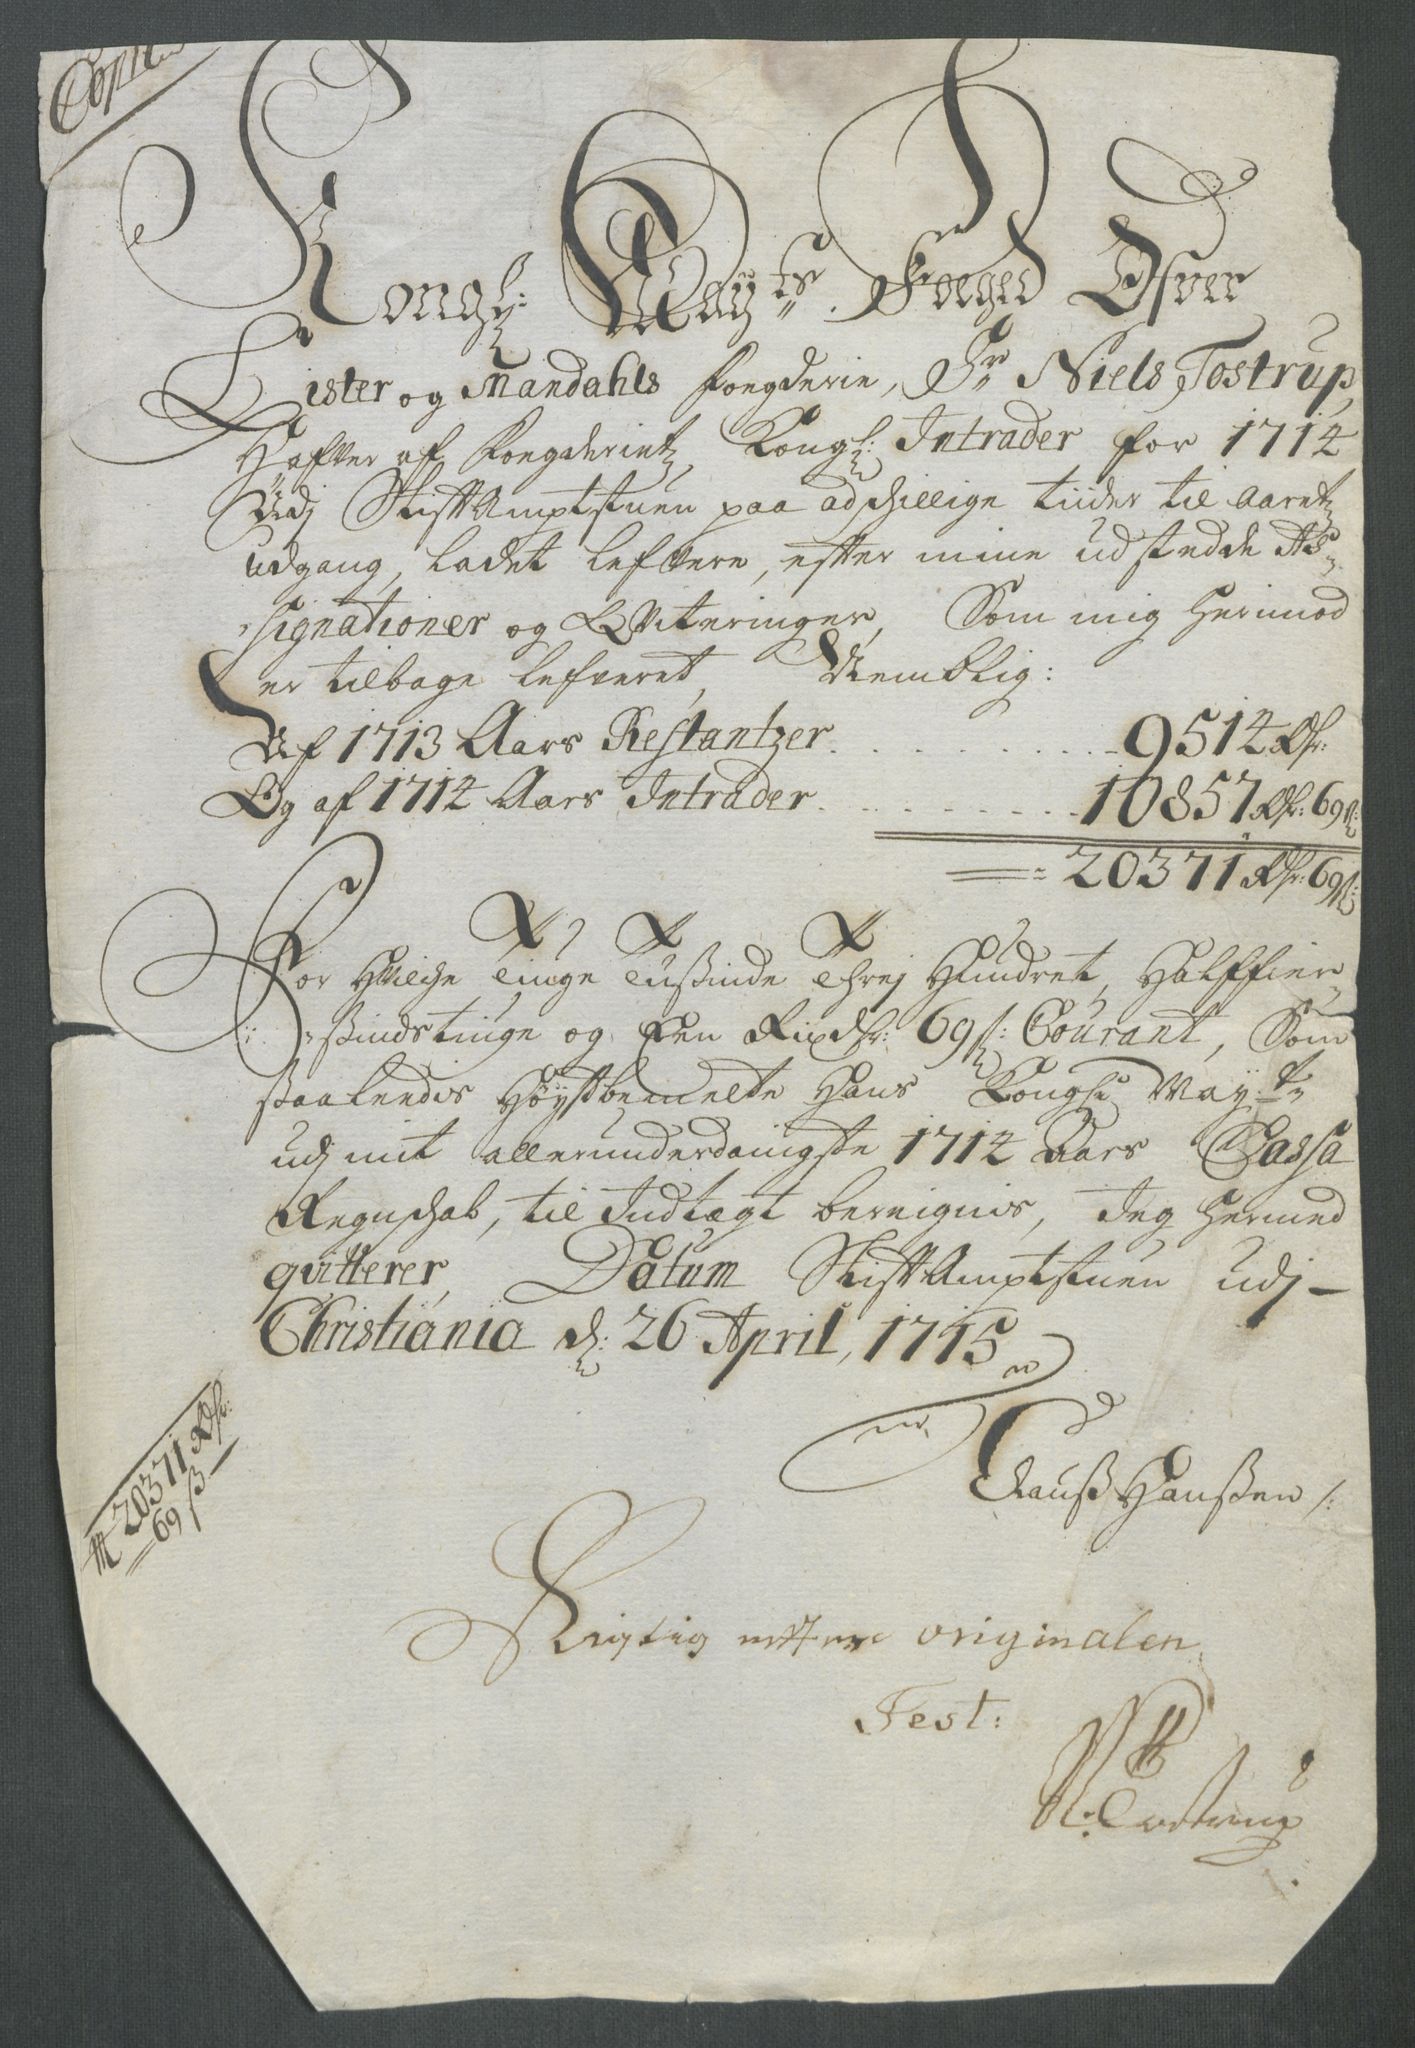 Copie
Kongl: Mayts. Foeged Ofver
Lister og Mandahls foegderie, Sr Niels Tostrup,
Hafver af foegderiet, Kongl: Intrader for 1714
Udj StiftAmptstuen paa adschillige tiider til aaretz
udgang, ladet lefvere, efter mine udstedde As-
signationer og Qviteringer, Som mig herimod
er tilbage lefveret, Nemblig:
Af 1713 Aars Restantzer . . . . . . . 9514 Rdr:
Og af 1714 Aars Intrader . . . . . . . 10857 Rdr: 69 ß:
20371 Rdr: 69 ß:
For Hvilche Tiuge Tußinde Threj Hundret, Halffier-
sindstiuge og Een Rixdr: 69 ß: Courant, Som
saaledis Høystbemelte Hans Kongl: Mayts
udj mit allerunderdanigste 1714 Aars Cassa
Regnschab, til Indtægt beregnis, Jeg hermed
qvitterer, Datum StiftAmptstuen udj
Christiania d: 26 April, 1715
Clauß Hanßen /:
20371 Rdr:
69 ß
Rigtig efter originalen
Test:
N: Tostrup